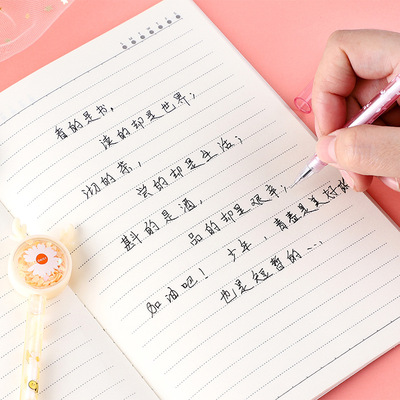 看的是书，
读的却是世界；
沏的茶，
尝的却是生活；
斟的是酒，
品的却是艰辛；
少年，青春是美好的
加油吧！
也是短暂的....